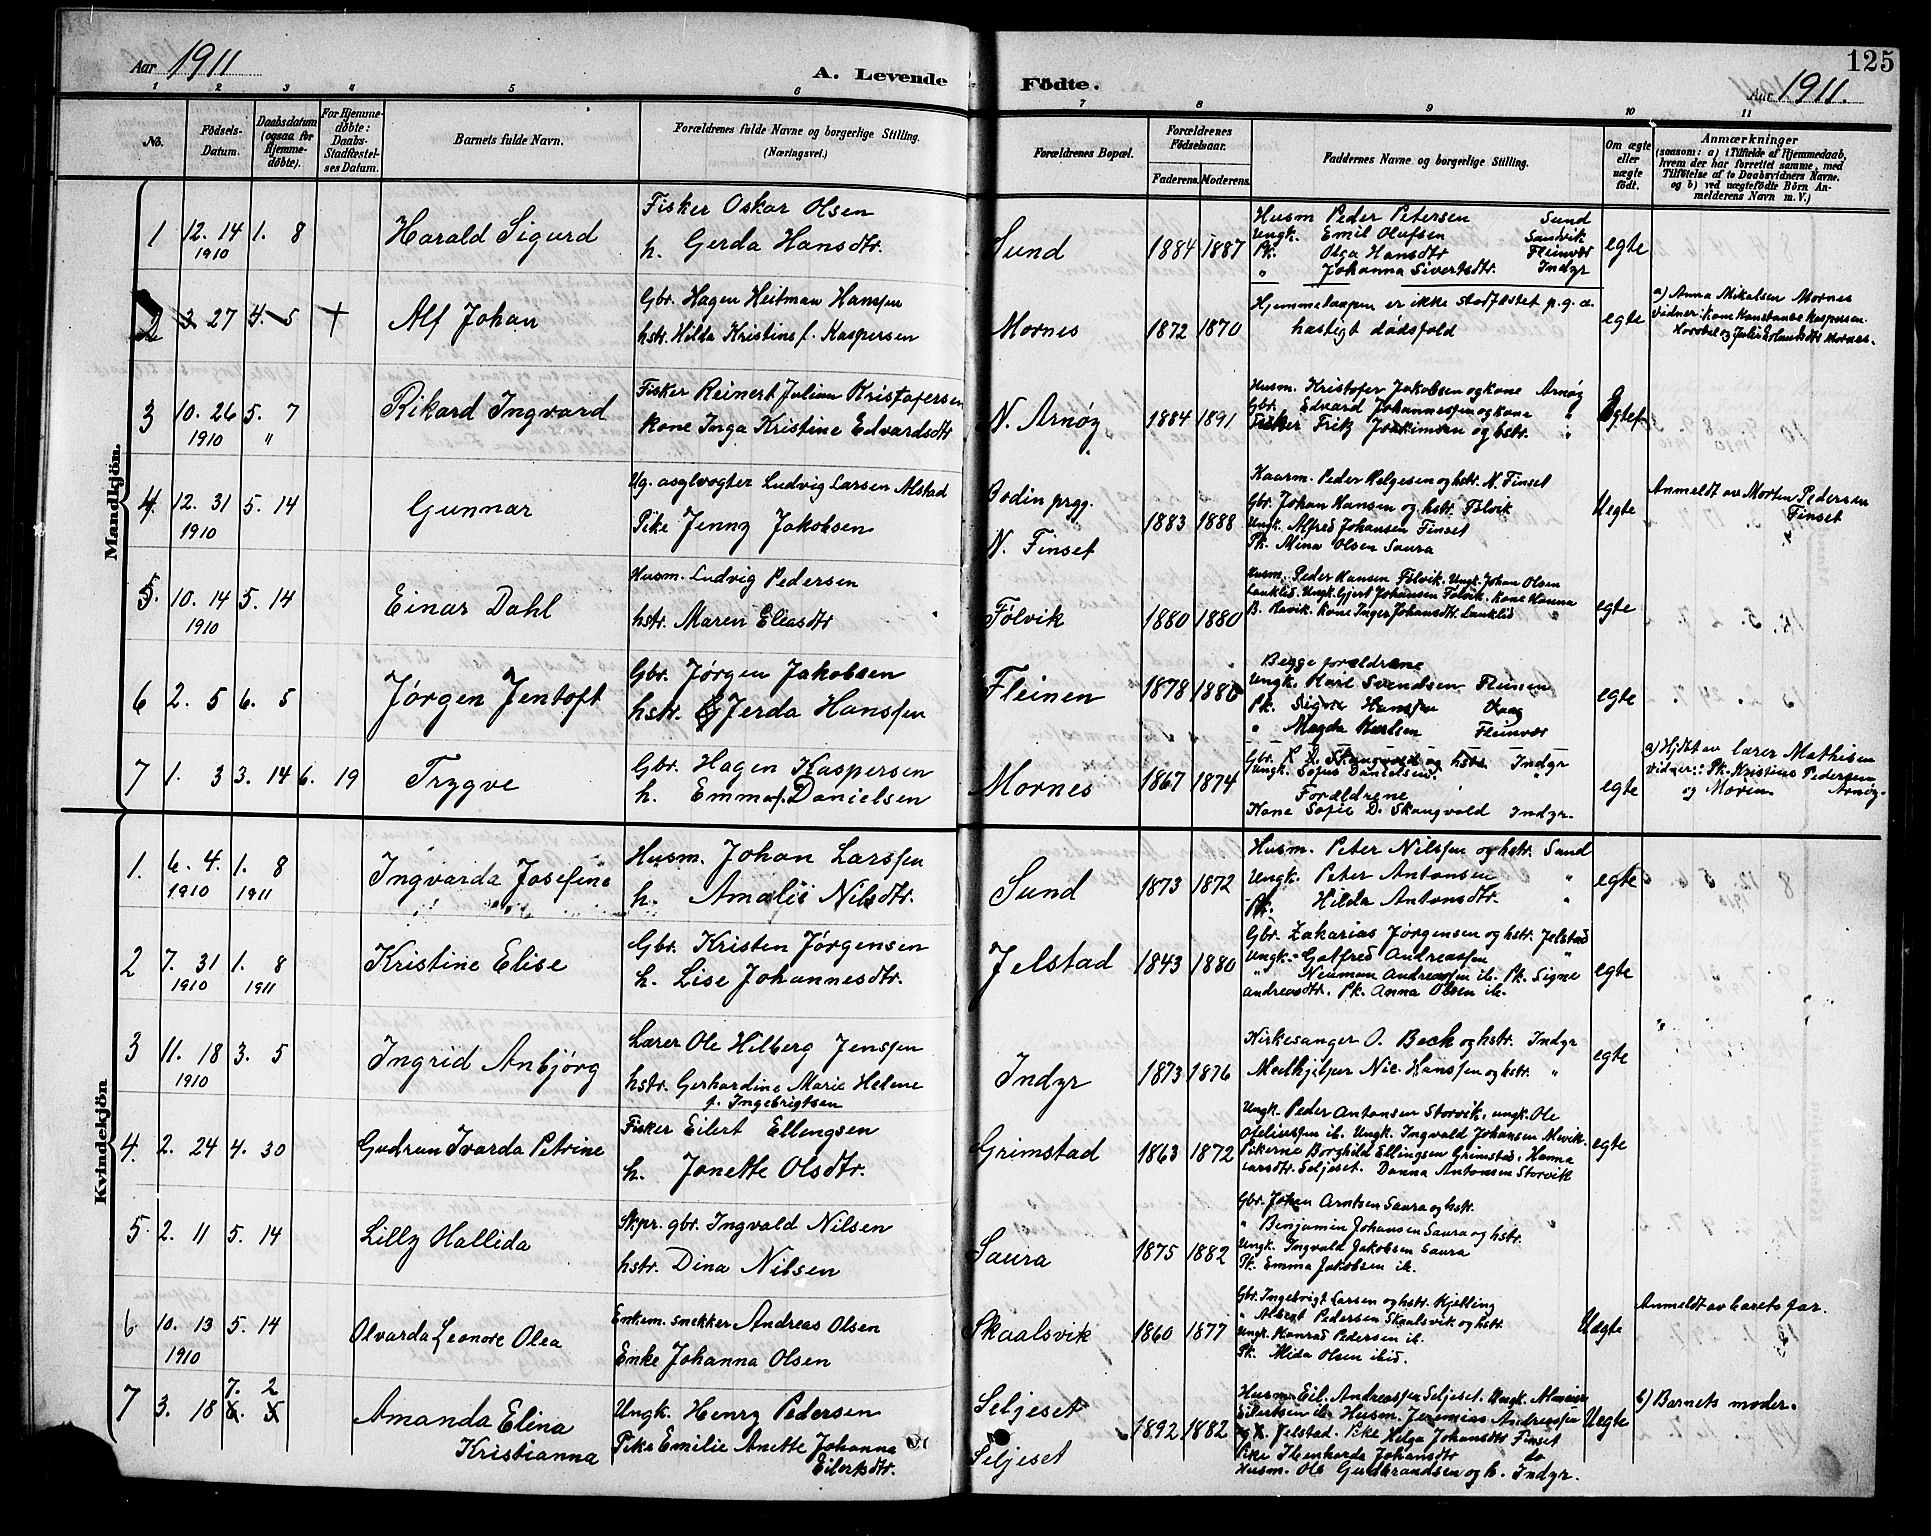 125
Aar 1911
A. Levende Födte.
Aar 1911.
1 2 3 4 5 6 7 8 9 10 11
No.
Födsels-Datum.
Daabsdatum (ogsaa for Hjemme-döbte).
For Hjemme-döbte: Daabs-Stadfæstel-ses Datum.
Barnets fulde Navn.
Forældrenes fulde Navne og borgerlige Stilling.
(Næringsvei.)
Forældrenes Bopæl.
Forældrenes Födselsaar.
Faderens. Moderens.
Faddernes Navne og borgerlige Stilling.
Om ægte eller uægte födt.
Anmærkninger
(saasom: a) i Tilfælde af Hjemmedaab,
hvem der har forrettet samme, med
Tilföielse af to Daabsvidners Navne,
og b) ved uægtefödte Börn An-
melderens Navn m. V.)
Mandkjön.
1 12. 14 1910 1. 8 Harald Sigurd
Fisker Oskar Olsen
h. Gerda Hansdtr.
Sund 1884 1887
Husm Peder Petersen Sund
Ungk. Emil Olufsen Sandvik
Pk. Olga Hansdtr Fleinvær
" Johanna Sivertsdtr. Indyr
egte
2 3 27 4. 5 + Alf Johan
Gbr. Hagen Heitman Hanssen
hstr. Hilda Kristine f. Kaspersen
Mornes 1872 1870
Hjemmedaapen er ikke stadfæstet p.g.a.
hastigt dødsfald
egte
a) Anna Mikalsen Mornes
vidner: Kone Konstanse Kaspersen
3 10. 26 1910 5. 7 " Rikard Ingvard
Fisker Reinert Julian Kristofersen
kone Inga Kristine Edvardsdtr
N. Arnøy 1884 1891
Husm. Kristofer Jakobsen og kone Arnøy
Gbr. Edvard Johannessen og kone "
Fisker Fritz Joakimsen og hstr. "
Egtef
4 12. 31 1910 5. 14 Gunnar
Ug. asylvogter Ludvig Larsen Alstad
Pike Jenny Jakobsen
Bodin prgj.
N. Finset
1883 1888
Kaarm. Peder Helgesen og hstr. N. Finset
Gbr. Johan Hansen og hstr. Følvik
Ungk. Alfred Johansen Finset
Pk. Mina Olsen Saura
Uegte
Anmeldt av Morten Pedersen
Finset
5. 10. 14 1910 5. 14 Einar Dahl
Husm. Ludvig Pedersen
hstr. Maren Eliasdtr
Følvik 1880 1880
Husm. Peder Hansen Følvik. Ungk. Johan Olsen
Lauklid. Ungk. Gjert Johansen Følvik. Kone Hanna
B. Ravik. Kone Inger Johansdtr Lauklid
egte
6 2. 5 6. 5 Jørgen Jentoft
Gbr. Jørgen Jakobsen
hstr. Jerda Hanssen
Fleinen 1878 1880
Begge forældrene
Ungk. Karl Svendsen Fleinen
Pk. Signe Hanssen Vaag
" Magda Karlsen Fleinvær
egte
7 1. 3 3. 14 6. 19 Trygve
Gbr. Hagen Kaspersen
h. Emma f. Danielsen
Mornes 1867 1874
Gbr. P. D. Skaugvold og hstr. Indyr
Ungk. Sofus Danielsen. "
Forældrene
Kone Sofie D. Skaugvold Indyr.
egte
a) Hjdbt av lærer Mathisen
vidner: Pk. Kristine Pedersen
og Moren Arnøy.
Kvindekjön
1. 6. 4. 1910 1. 8 1911 Ingvarda Josefine
Husm. Johan Larssen
h. Amalie Nilsdtr.
Sund 1873 1872
Husm. Peter Nilssen og hstr. Sund
Ungk. Peter Antonsen "
Pk. Hilda Antonsdtr. "
egte
2 7. 31 1910 1. 8 1911 Kristine Elise
Gbr. Kristen Jørgensen
h. Lise Johannesdtr.
Jelstad 1843 1880
Gbr. Zakarias Jørgensen og hstr. Jelstad
Ungk. Gotfred Andreassen "
" Neuman Andreassen ib. Pk. Signe
Andreasdtr. Pk. Anna Olsen ib.
egte
3 11. 18 1910 3. 5 Ingrid Anbjørg
Lærer Ole Hilberg Jenssen
hstr. Gerhardine Marie Helene
f. Ingebrigtsen
Indyr 1873 1876
Kirkesanger O. Bech og hstr. Indyr
Medhjelper Nic. Hanssen og hstr. "
egte
4. 2. 24 4. 30 Gudrun Ivarda Petrine
Fisker Eilert Ellingsen
h. Jonette Olsdtr.
Grimstad 1863 1872
Ungk. Peder Antonsen Storvik, ungk. Ole
Ofeliussen ib. Ungk. Ingvald Johansen Mevik.
Pikerne Borghild Ellingsen Grimstad, Hanna
Larsdtr. Seljeset. Danna Antonsen Storvik
egte
5. 2. 11 5. 14 Lilly Hallida
Skpr. gbr. Ingvald Nilsen
hstr. Dina Nilsen
Saura 1875 1882
Gbr. Johan Arntsen Saura og hstr.
" Benjamin Johansen Saura og hstr.
Ungk. Ingvald Jakobsen Saura
Pk. Emma Jakobsen ib.
6 10. 13 1910 5. 14 Olvarda Leonore Olea
Enkem. snekker Andreas Olsen
Enke Johanna Olsen
Skaalsvik 1860 1877
Gbr. Ingebrigt Larsen og hstr. Kjelling
" Albert Pedersen Skaalsvik og hstr
Ungk. Konrad Pedersen ib.
Pk. Alida Olsen ibid.
Uegte
Anmeldt av barets far.
7 3. 18 7. 2 6. 5 Amanda Elina
Kristianna
Ungk. Henry Pedersen
Pike Emilie Anette Johanna
Eilertsdtr.
Seljeset
Seljeset
1892 1882
Husm. Eil. Andreassen Seljeset. Ungk.
Eilertsen ib. Husm. Jeremias Andreassen
og h. Jelstad. Pike Helga Johansdtr Finset
Pike Johansdtr do
Husm. Ole Gudbrandsen og h. Indyr.
Uegte
b) Barnets moder.